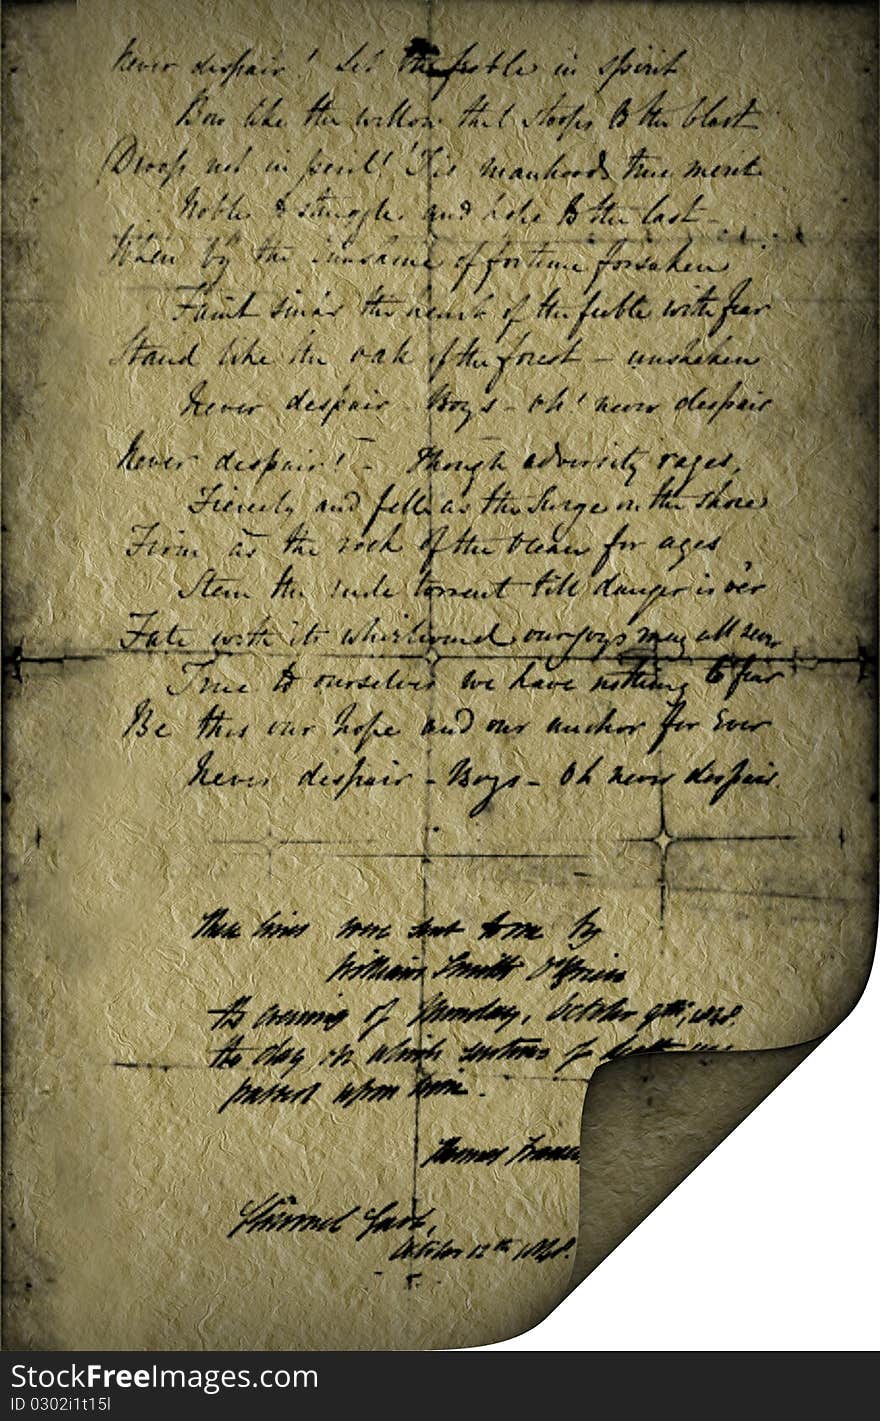 Never despair! Let the feeble in spirit
Bow like the willow that stoops to the blast
Droop not in peril! 'Tis manhoods true merit
Nobly to struggle and hope to the last –
When by the sunshine of fortune forsaken
Faint sinks the heart of the feeble with fear
Stand like the oak of the forest – unshaken
Never despair – Boys – oh! never despair
Never despair! – Though adversity rages,
Fiercely and fell as the Surge on the shore
Firm as the rock of the Ocean for ages
Stem the rude torrent till danger is o'er
Fate with its whirlwind our joys may all
True to ourselves we have nothing to fear
Be this our hope and our anchor for Ever
Never despair – Boys – Oh never despair.
These lines were sent to me by
William Smith O'Brien
the evening of Monday, October 9th, 1848.
the day on which sentence of
passed upon him.
Thomas
Clonmel Gaol,
October 12th 1848.
StockFreeImages.com
ID 0302i1t15l